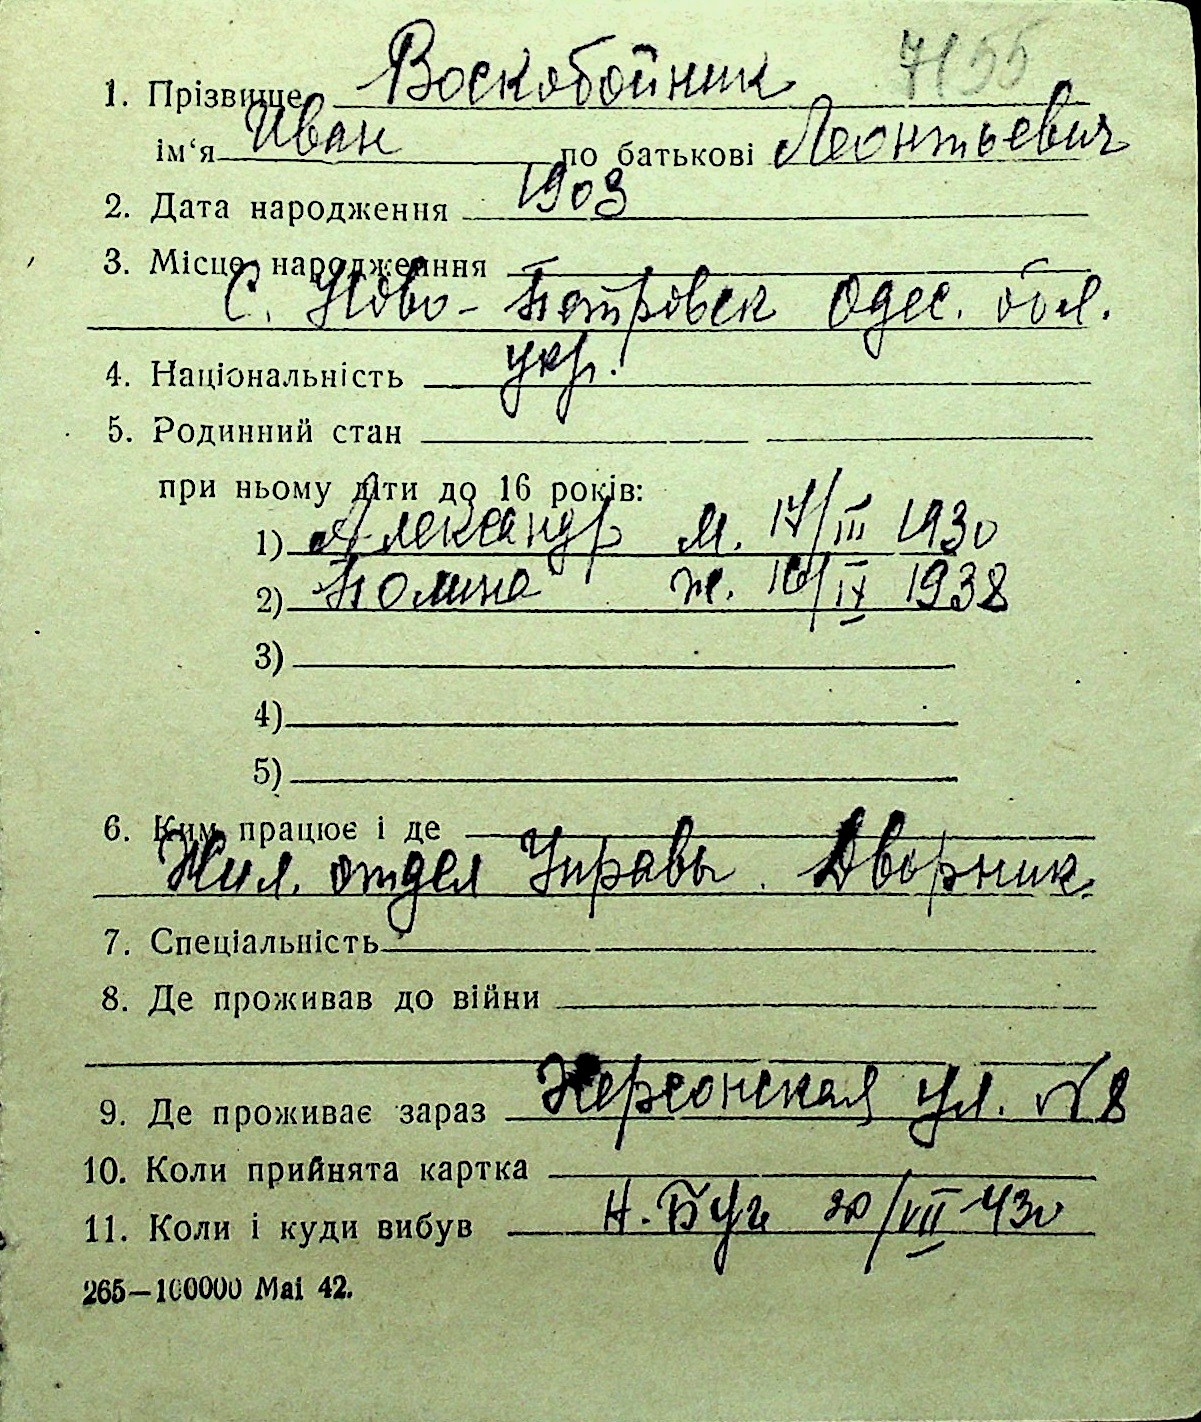 7155
1. Прізвище Воскобойник
ім‘я Иван по батькові Леонтьевич
2. Дата народження 1903
3. Місце народженння
С. Ново-Петровск Одес. обл.
4. Національність укр.
5. Родинний стан
при ньому діти до 16 років:
1) Александр м. 17/III 1930
2) Полина ж. 10/IX 1938
3)
4)
5)
6. Ким працює і де
Жил. отдел Управы. Дворник.
7. Спеціальність
8. Де проживав до війни
9. Де проживає зараз Херсонская ул. №8
10. Коли прийнята картка
11. Коли і куди вибув Н. Буг 20/VII
265—100000 Mai 42.